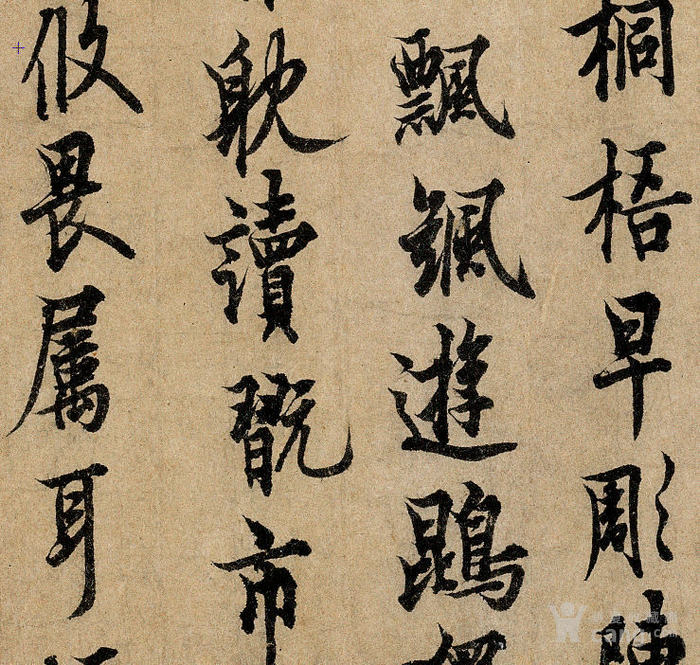 桐梧早彫
飄颻遊鵾
躭讀翫市
攸畏属耳